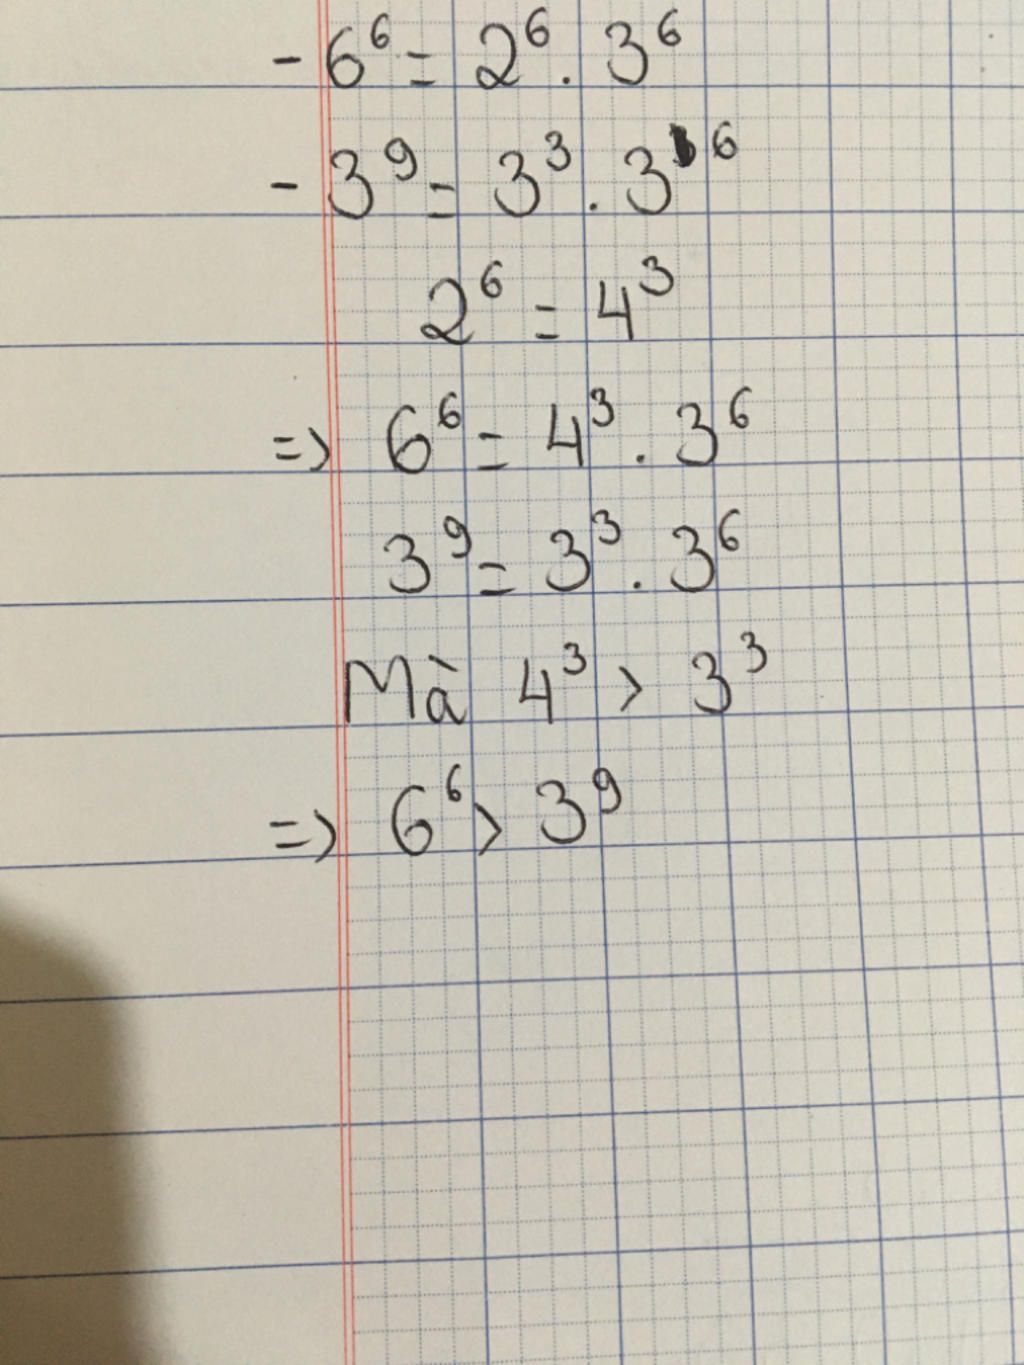 - 6⁶ = 2⁶ . 3⁶
- 3⁹ = 3³ . 3⁶
2⁶ = 4³
=> 6⁶ = 4³ . 3⁶
3⁹ = 3³ . 3⁶
Mà 4³ > 3³
=> 6⁶ > 3⁹